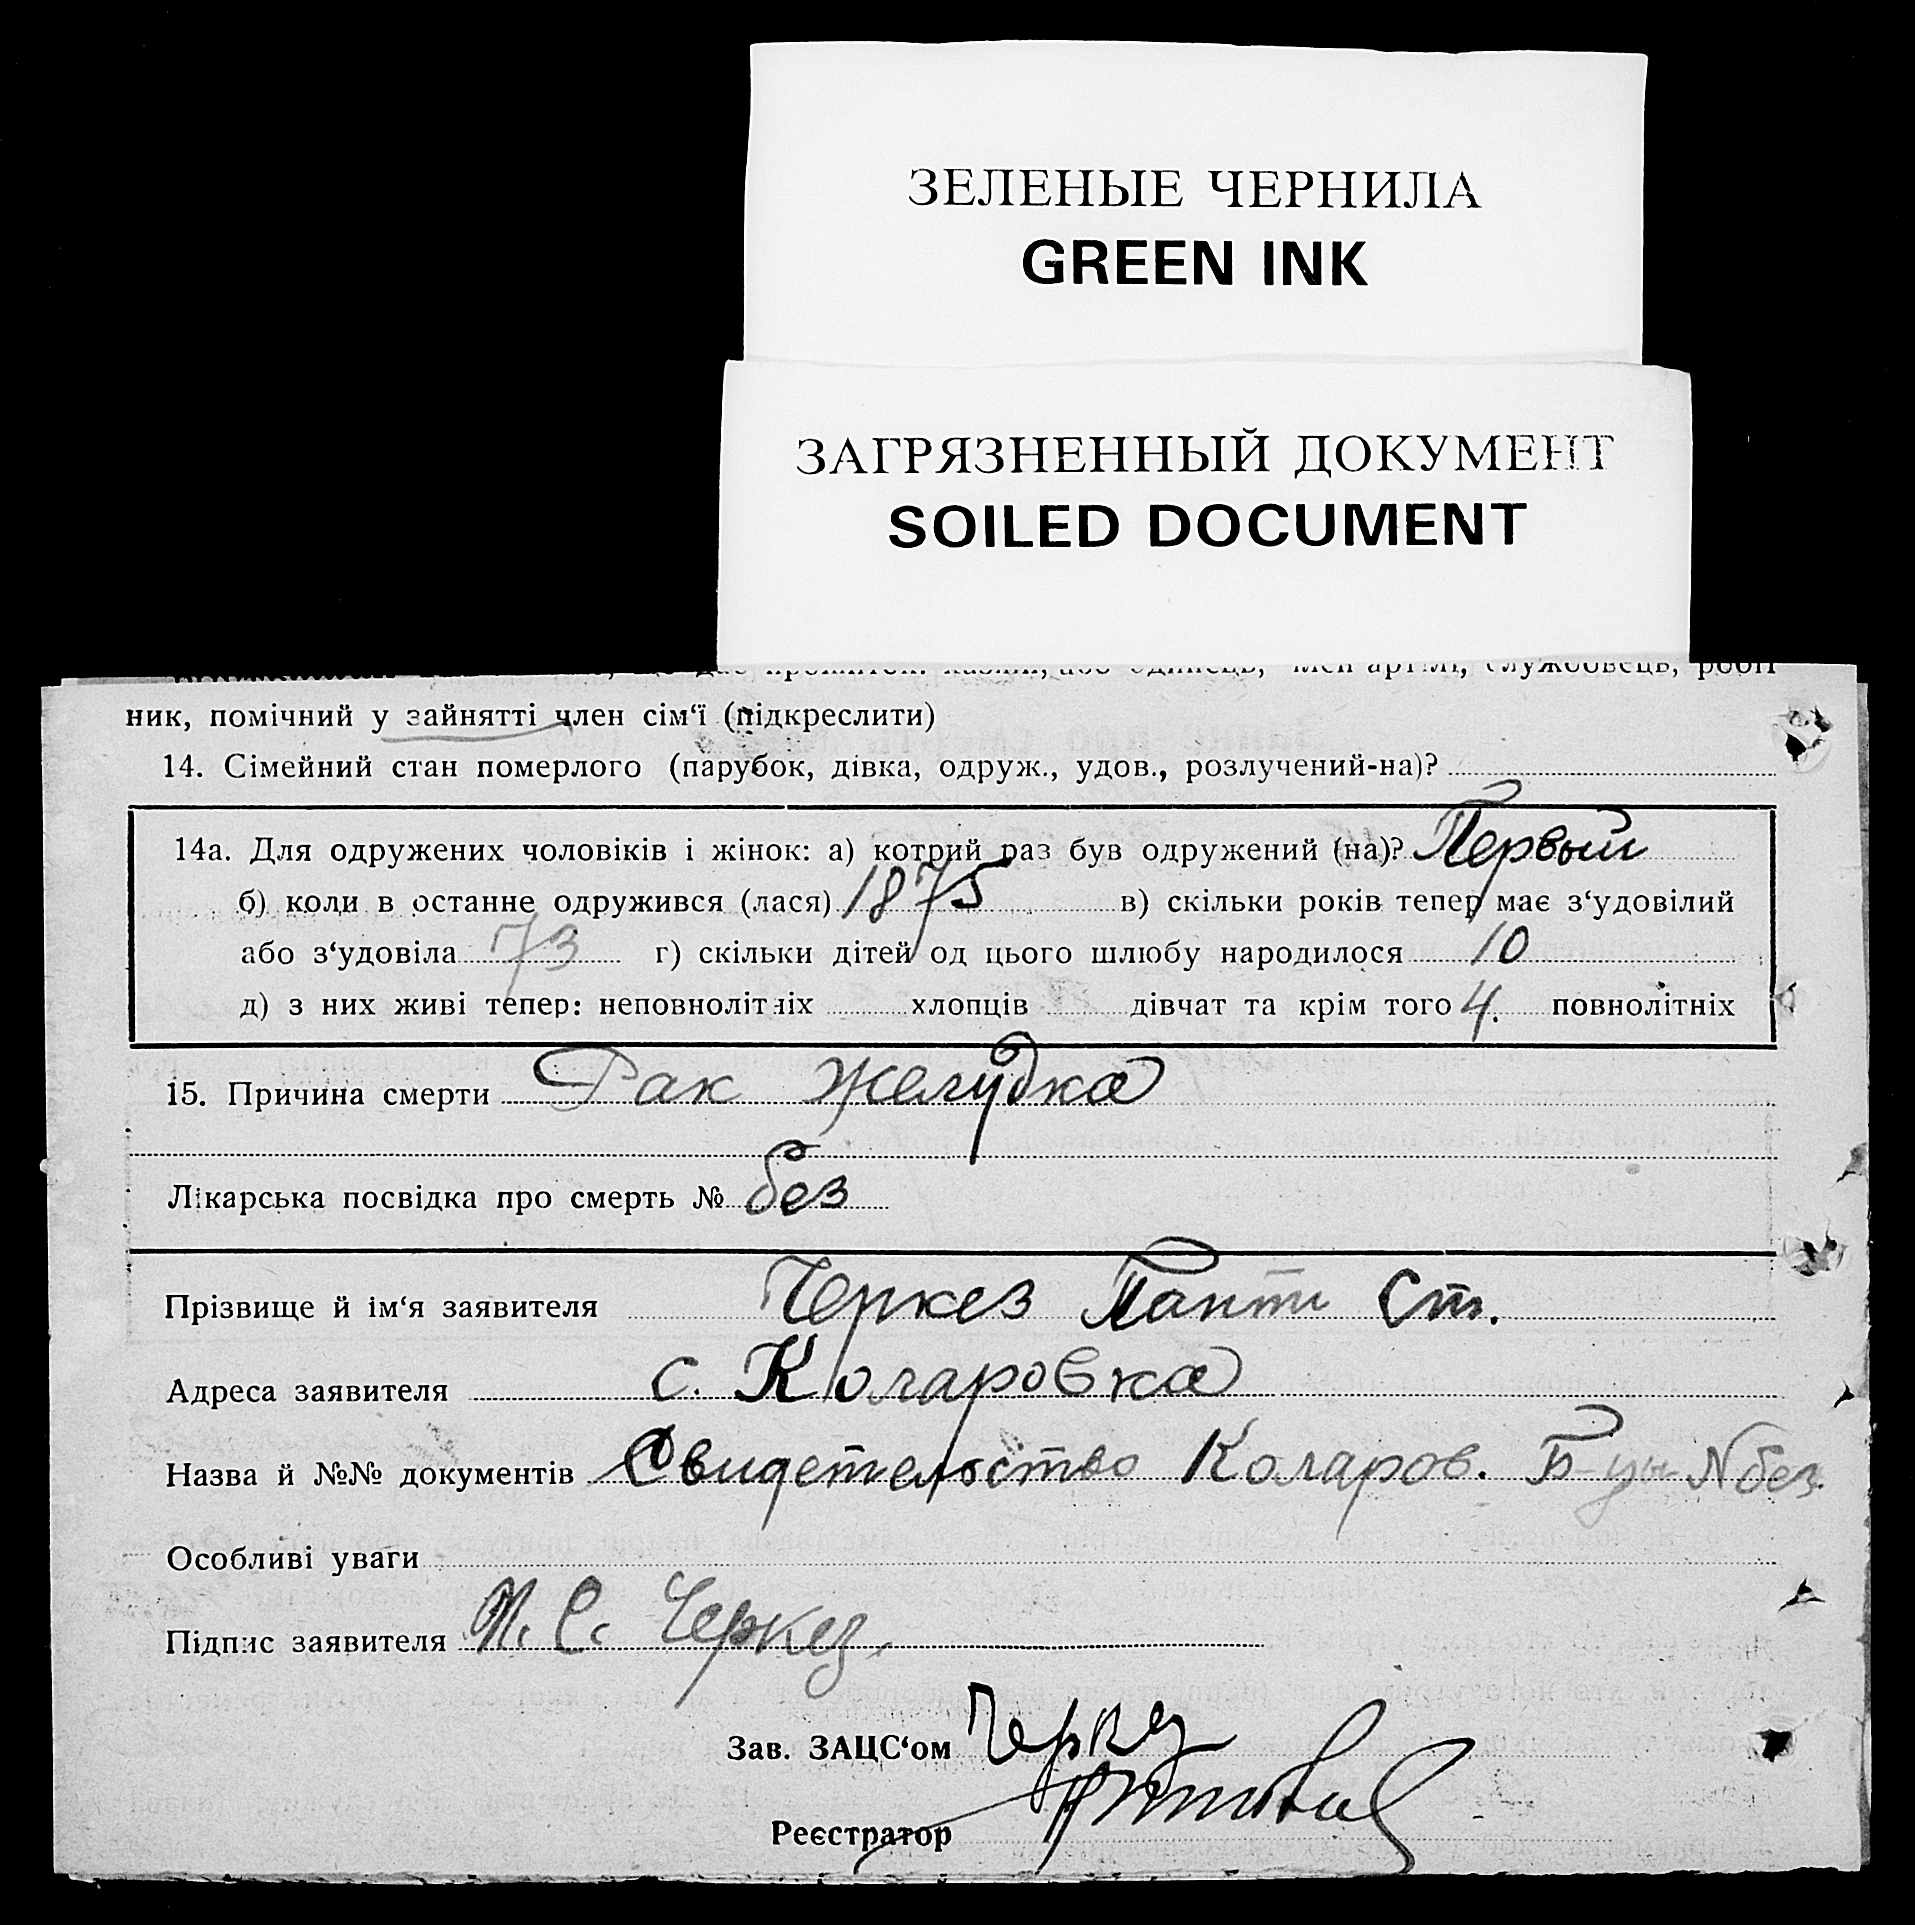 ЗЕЛЕНЫЕ ЧЕРНИЛА
GREEN INK
ЗАГРЯЗНЕННЫЙ ДОКУМЕНТ
SOILED DOCUMENT
ник, помічний у зайнятті член сім‘ї (підкреслити)
14. Сімейний стан померлого (парубок, дівка, одруж., удов., розлучений-на)?
14а. Для одружених чоловіків і жінок: а) котрий раз був одружений (на)? Первый
б) коли в останне одружився (лася) 1875 в) скільки років тепер має з‘удовілий
або з‘удовіла 73 г) скільки дітей од цього шлюбу народилося 10
д) з них живі тепер: неповнолітніх хлопців дівчат та крім того 4. повнолітніх
15. Причина смерти Рак желудка
Лікарська посвідка про смерть № без
Прізвище й ім‘я заявителя Черкез Панти Ст.
Адреса заявителя с. Коларовка
Назва й №№ документів Свидетельство Коларов. Б-цы N без.
Особливі уваги
Підпис заявителя П. С. Черкез.
Зав. ЗАЦС‘ом Черкез
Реєстратор